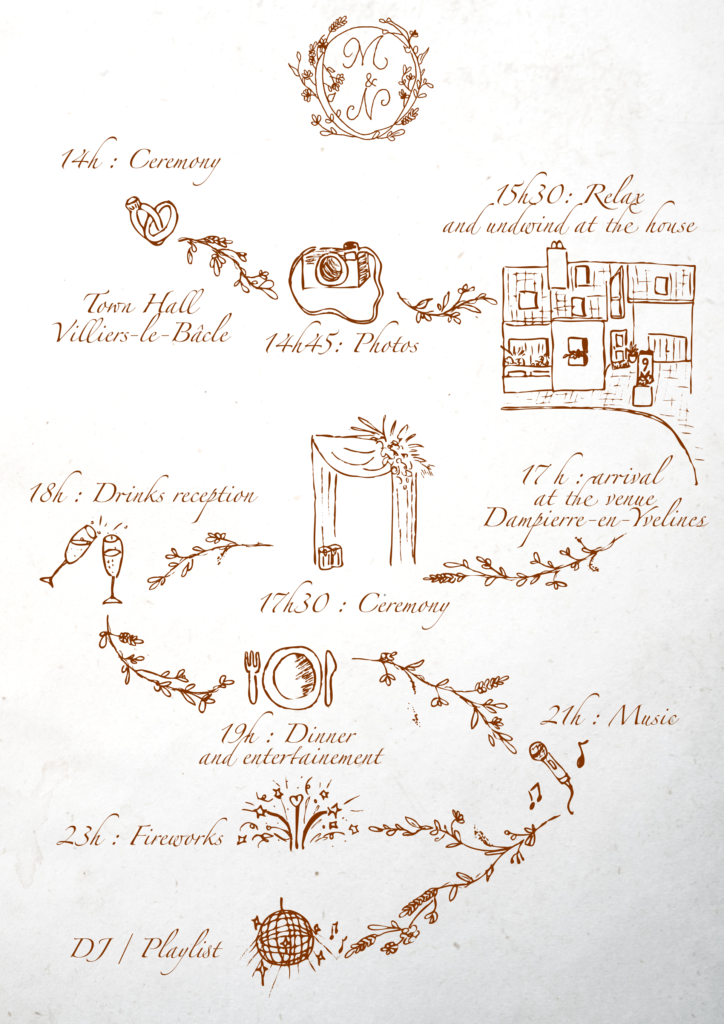 M
&
N
14h : Ceremony
Town Hall
Villiers-le-Bâcle
14h45: Photos
15h30: Relax
and undwind at the house
9
17h : arrival
at the venue
Dampierre-en-Yvelines
17h30 : Ceremony
18h : Drinks reception
19h : Dinner
and entertainement
21h : Music
23h : Fireworks
DJ | Playlist